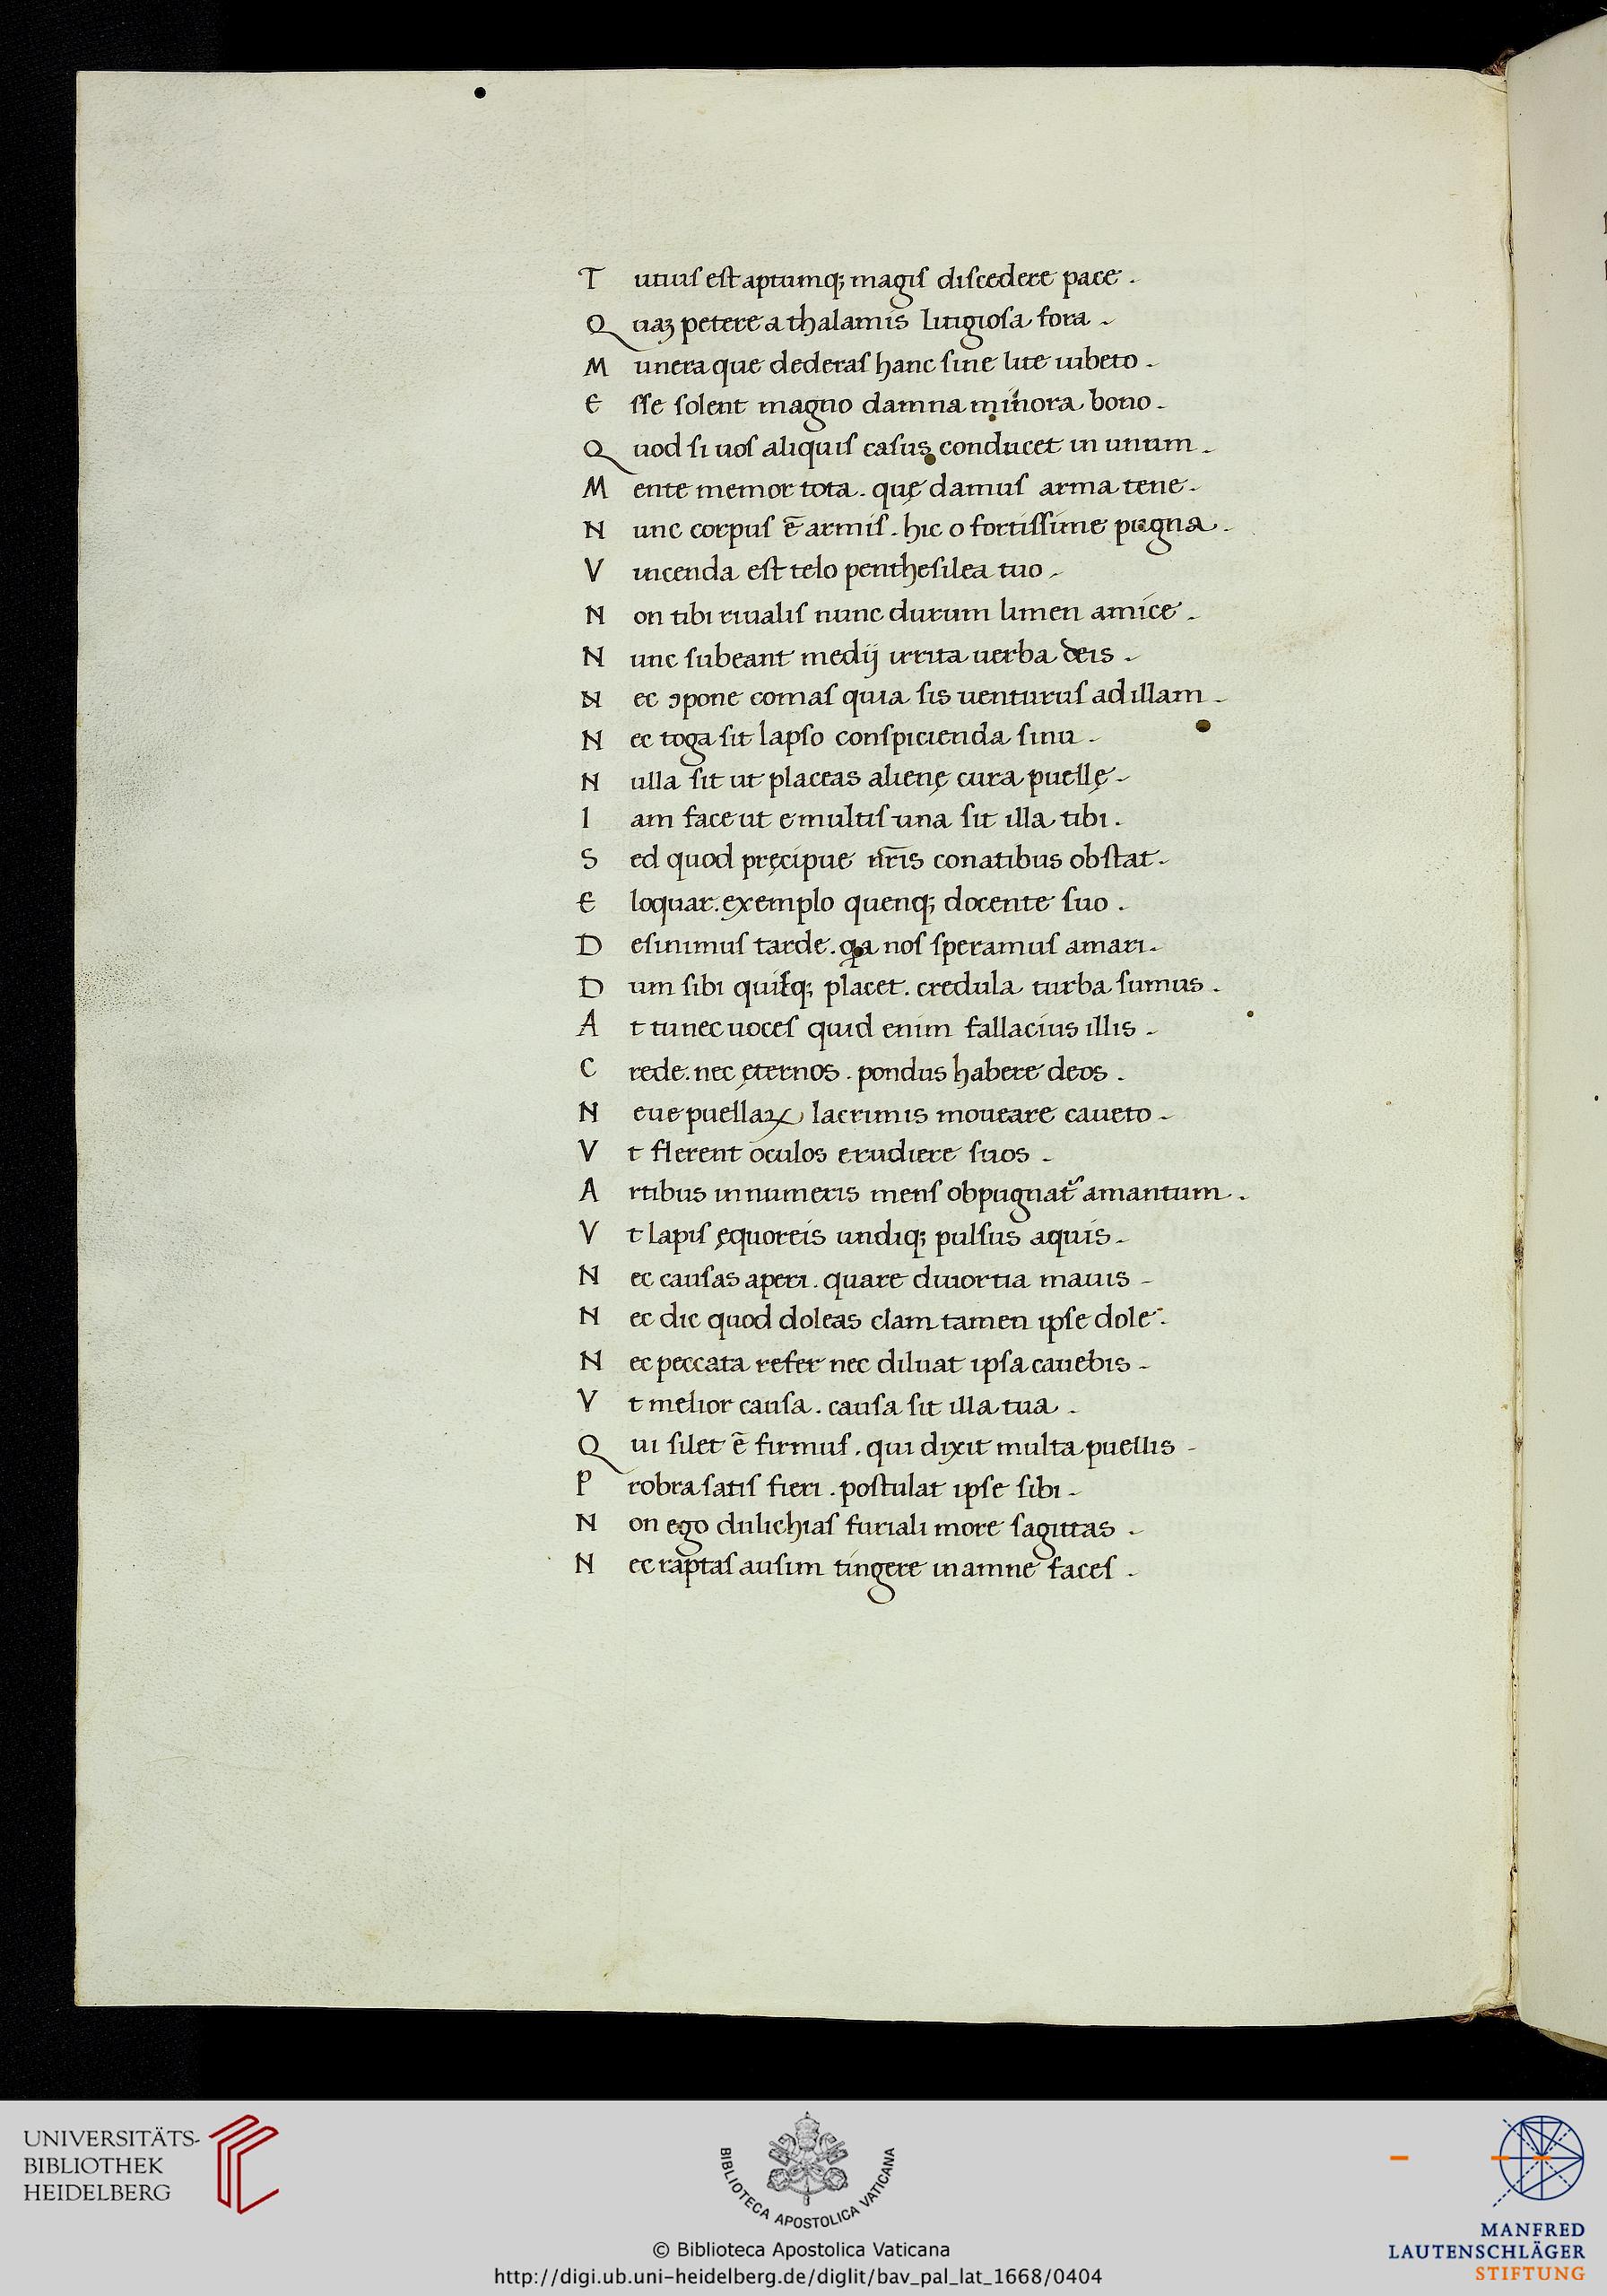 T utius est aptumq; magis discedere pace .
Q uaȝ petere a thalamis litigiosa fora .
M unera que dederas hanc sine lite iubeto .
E sse solent magno damna minora bono .
Q uod si uos aliquis casus conducet in unum .
M ente memor tota . quę damus arma tene .
N unc corpus ē armis . hic o fortissime pugna .
V incenda est telo penthesilea tuo .
N on tibi riualis nunc durum limen amice .
N unc subeant medij irrita uerba deis .
N ec ɔpone comas quia sis uenturus ad illam .
N ec toga sit lapso conspicienda sinu .
N ulla sit ut placeas alienę cura puellę .
I am face ut e multis una sit illa tibi .
S ed quod pręcipue nr̄is conatibus obstat .
E loquar . exemplo quenq; docente suo .
D esinimus tarde . qa nos speramus amari .
D um sibi quisq; placet . credula turba sumus .
A t tu nec uoces quid enim fallacius illis .
C rede . nec ęternos . pondus habere deos .
N eue puellaꝝ lacrimis moueare caueto .
V t flerent oculos erudiere suos .
A rtibus innumeris mens obpugnat᷑ amantum .
V t lapis ęquoreis undiq; pulsus aquis .
N ec causas aperi . quare diuortia mauis .
N ec dic quod doleas clam tamen ipse dole .
N ec peccata refer nec diluat ipsa cauebis .
V t melior causa . causa sit illa tua .
Q ui silet ē firmus . qui dixit multa puellis
P robra satis fieri . postulat ipse sibi .
N on ego dulichias furiali more sagittas .
N ec raptas ausim tingere in amne faces .
UNIVERSITÄTS-
BIBLIOTHEK
HEIDELBERG
BIBLIOTECA APOSTOLICA VATICANA
© Biblioteca Apostolica Vaticana
http://digi.ub.uni-heidelberg.de/diglit/bav_pal_lat_1668/0404
MANFRED
LAUTENSCHLÄGER
STIFTUNG